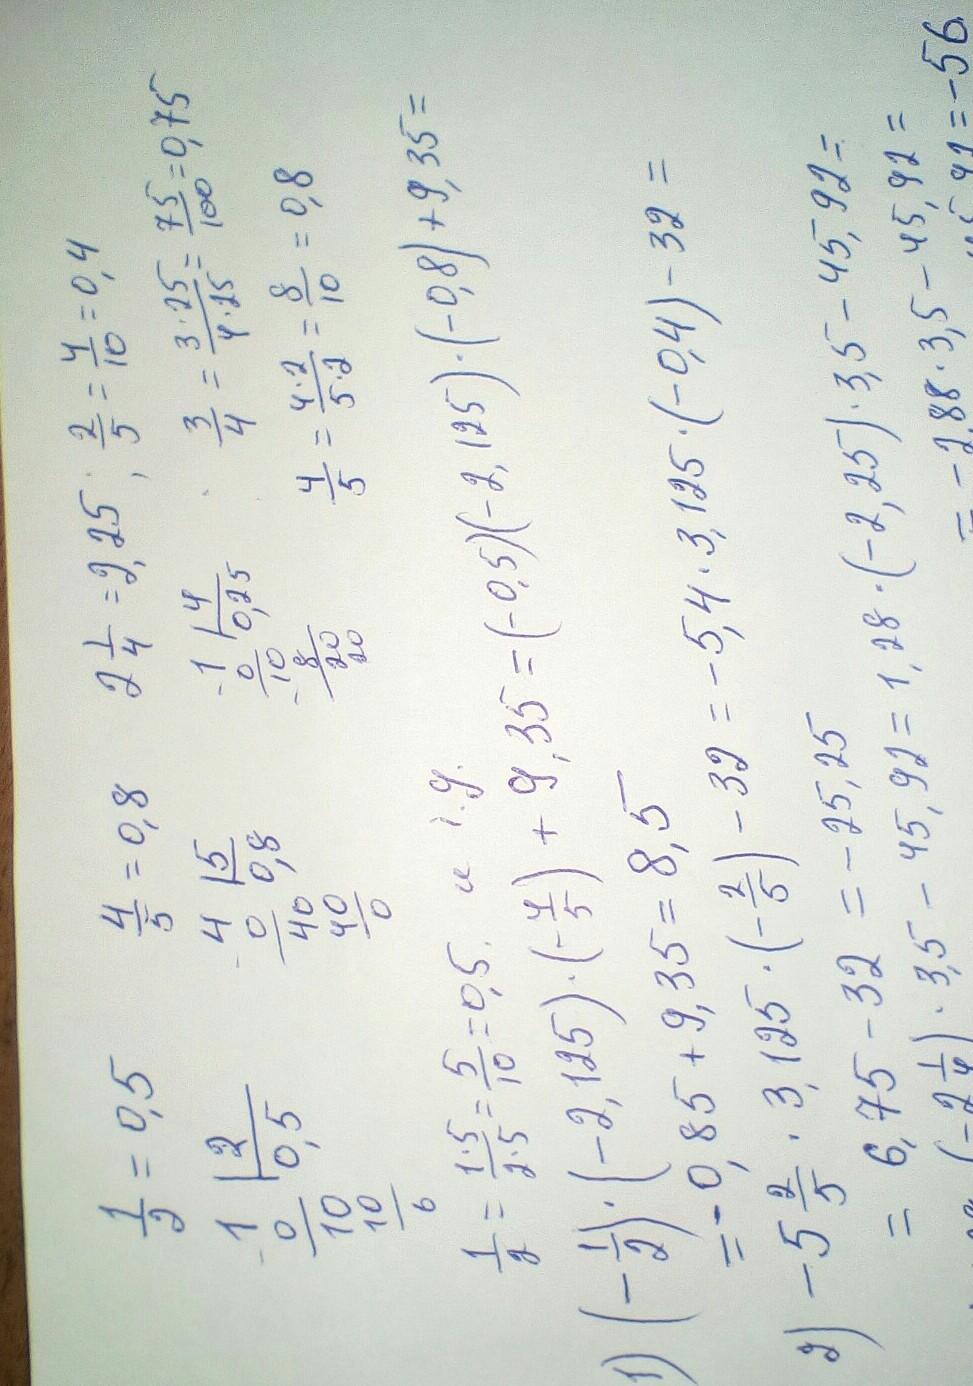 1/2 = 0,5 4/5 = 0,8 2 1/4 = 2,25; 2/5 = 4/10 = 0,4
-1 |2 4 |5 -1 |4 3/4 = 3·25/4·25 = 75/100 = 0,75
0 0,5 0 0,8 0 0,25
10 40 10
10 40 8 4/5 = 4·2/5·2 = 8/10 = 0,8
0 0 20
20
1/2 = 1·5/2·5 = 5/10 = 0,5. и т.д.
1) (-1/2)·(-2,125)·(-4/5) + 9,35 = (-0,5)(-2,125)·(-0,8)+9,35 =
= -0,85 + 9,35 = 8,5
2) -5 2/5 · 3,125 · (-2/5) - 32 = -5,4·3,125·(-0,4) - 32 =
= 6,75 - 32 = -25,25
(-2 1/4)·3,5 - 45,92 = 1,28·(-2,25)·3,5 - 45,92 =
= -2,88·3,5 - 45,92 =
= -56